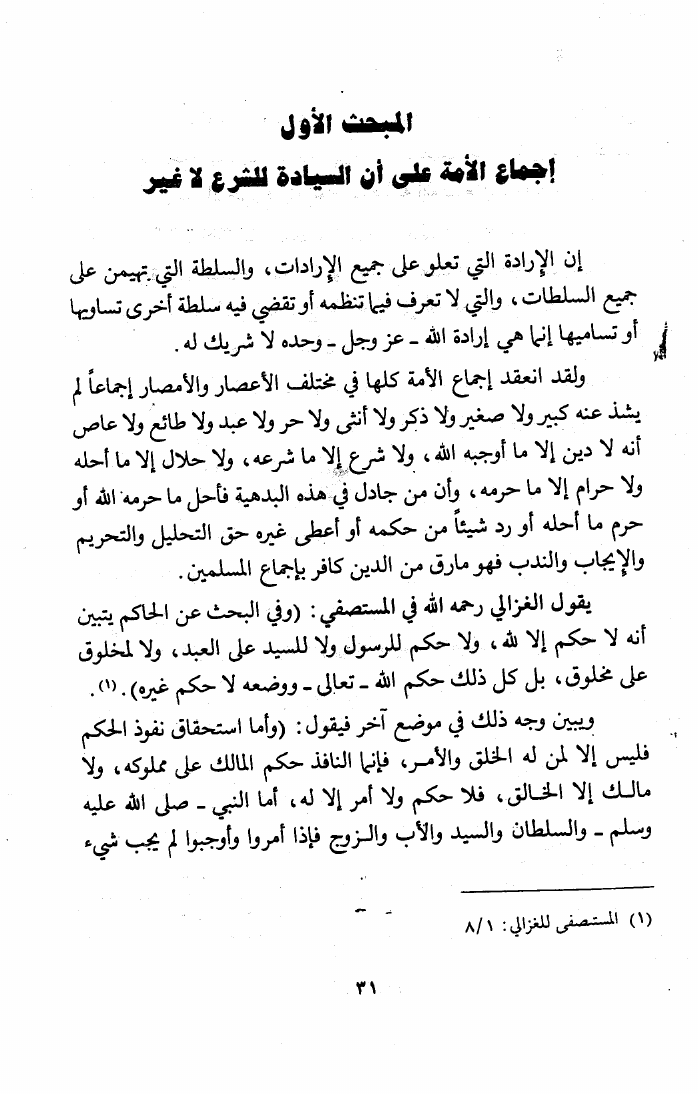 المبحث الأول
إجماع الأمة على أن السيادة للشرع لا غير
إن الإرادة التي تعلو على جميع الإرادات، والسلطة التي تهيمن على
جميع السلطات، والتي لا تعرف فيما تنظمه أو تقضي فيه سلطة أخرى تساويها
أو تساميها إنما هي إرادة الله ـ عز وجل ـ وحده لا شريك له.
ولقد انعقد إجماع الأمة كلها في مختلف الأعصار والأمصار إجماعاً لم
يشذ عنه كبير ولا صغير ولا ذكر ولا أنثى ولا حر ولا عبد ولا طائع ولا عاص
أنه لا دين إلا ما أوجبه الله، ولا شرع إلا ما شرعه، ولا حلال إلا ما أحله
ولا حرام إلا ما حرمه، وأن من جادل في هذه البدهية فأحل ما حرمه الله أو
حرم ما أحله أو رد شيئاً من حكمه أو أعطى غيره حق التحليل والتحريم
والإيجاب والندب فهو مارق من الدين كافر بإجماع المسلمين.
يقول الغزالي رحمه الله في المستصفي: (وفي البحث عن الحاكم يتبين
أنه لا حكم إلا لله، ولا حكم للرسول ولا للسيد على العبد، ولا لمخلوق
على مخلوق، بل كل ذلك حكم الله ـ تعالى ـ ووضعه لا حكم غيره).(١).
ويبين وجه ذلك في موضع آخر فيقول: (وأما استحقاق نفوذ الحكم
فليس إلا لمن له الخلق والأمر، فإنما النافذ حكم المالك على مملوكه، ولا
مالك إلا الخالق، فلا حكم ولا أمر إلا له، أما النبي ـ صلى الله عليه
وسلم ـ والسلطان والسيد والأب والزوج فإذا أمروا وأوجبوا لم يجب شيء
(١) المستصفى للغزالي: ٨/١
٣١